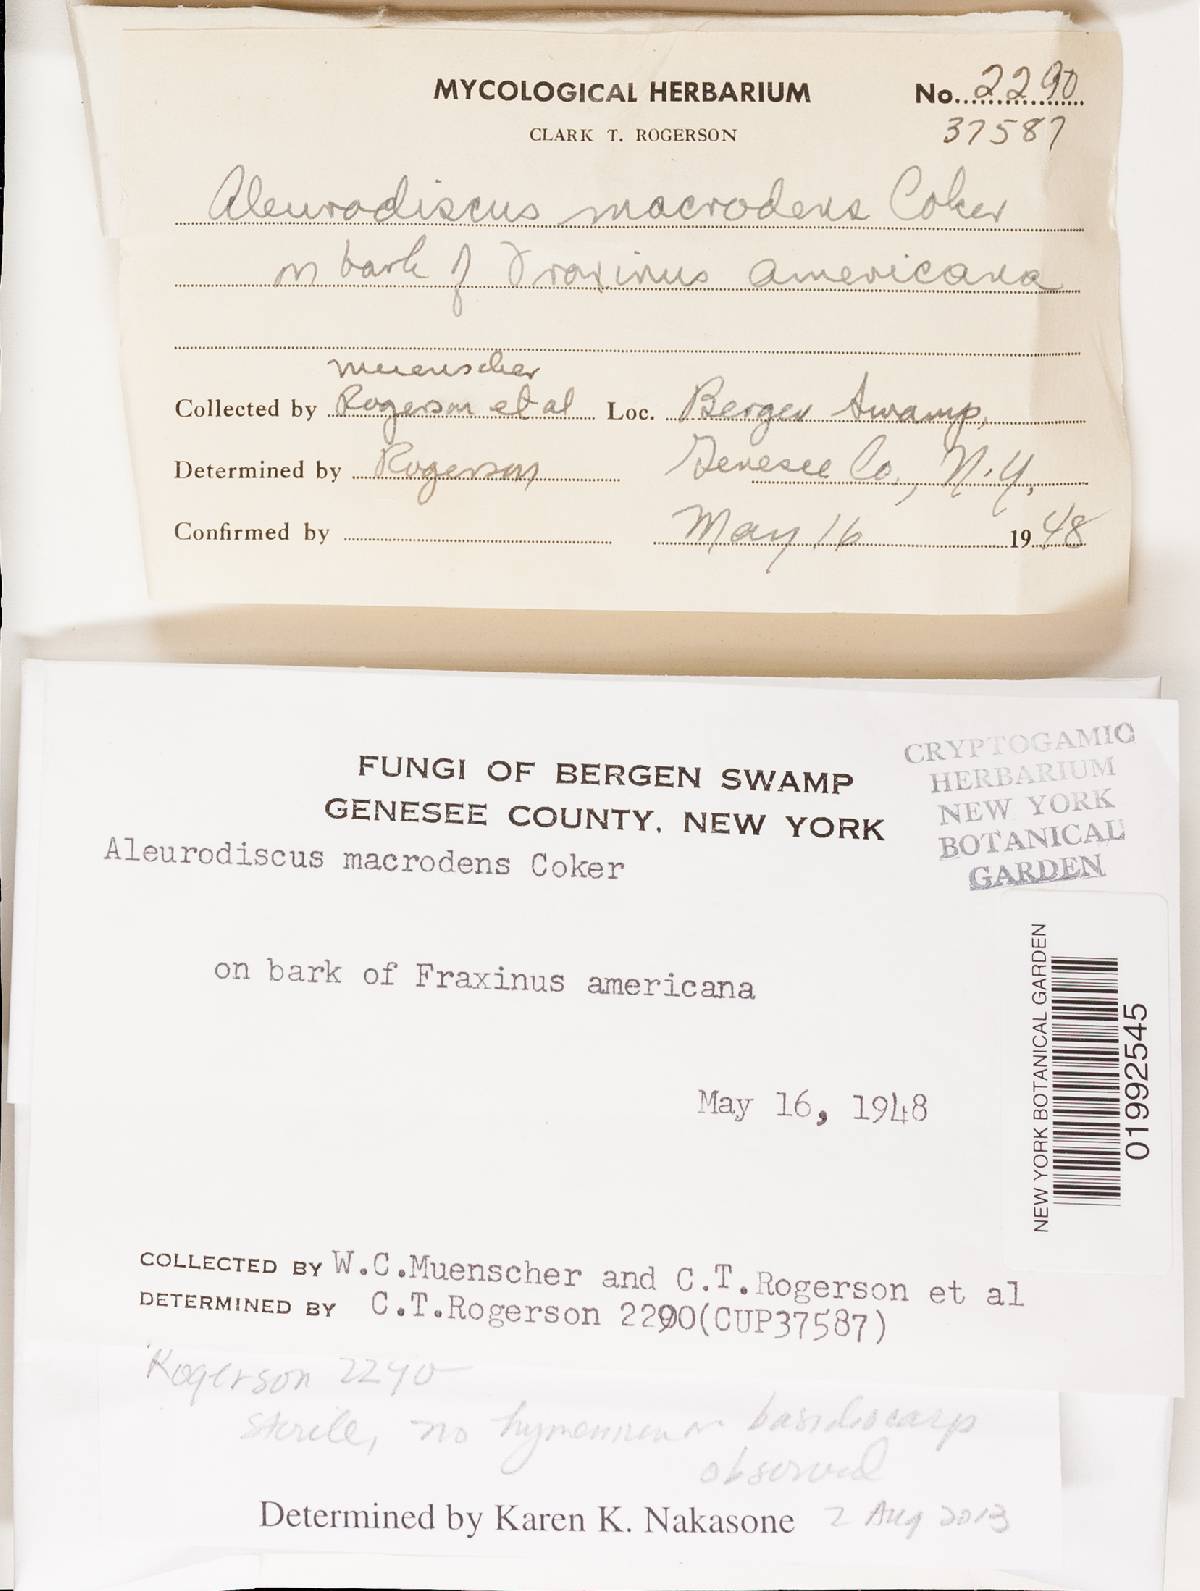 MYCOLOGICAL HERBARIUM
No. 2290
CLARK T. ROGERSON
37587
Aleurodiscus macrodens Coker
on bark of Fraxinus americana
Muenscher
Collected by Rogerson et al Loc. Bergen Swamp,
Determined by Rogerson Genesee Co., N.Y.,
Confirmed by May 16 1948
FUNGI OF BERGEN SWAMP
GENESEE COUNTY, NEW YORK
CRYPTOGAMIC
HERBARIUM
NEW YORK
BOTANICAL
GARDEN
Aleurodiscus macrodens Coker
on bark of Fraxinus americana
May 16, 1948
NEW YORK BOTANICAL GARDEN
01992545
COLLECTED BY W.C.Muenscher and C.T.Rogerson et al
DETERMINED BY C.T.Rogerson 2290(CUP37587)
Rogerson 2290
sterile, no hymenium or basidiocarp
observed
Determined by Karen K. Nakasone 2 Aug 2013